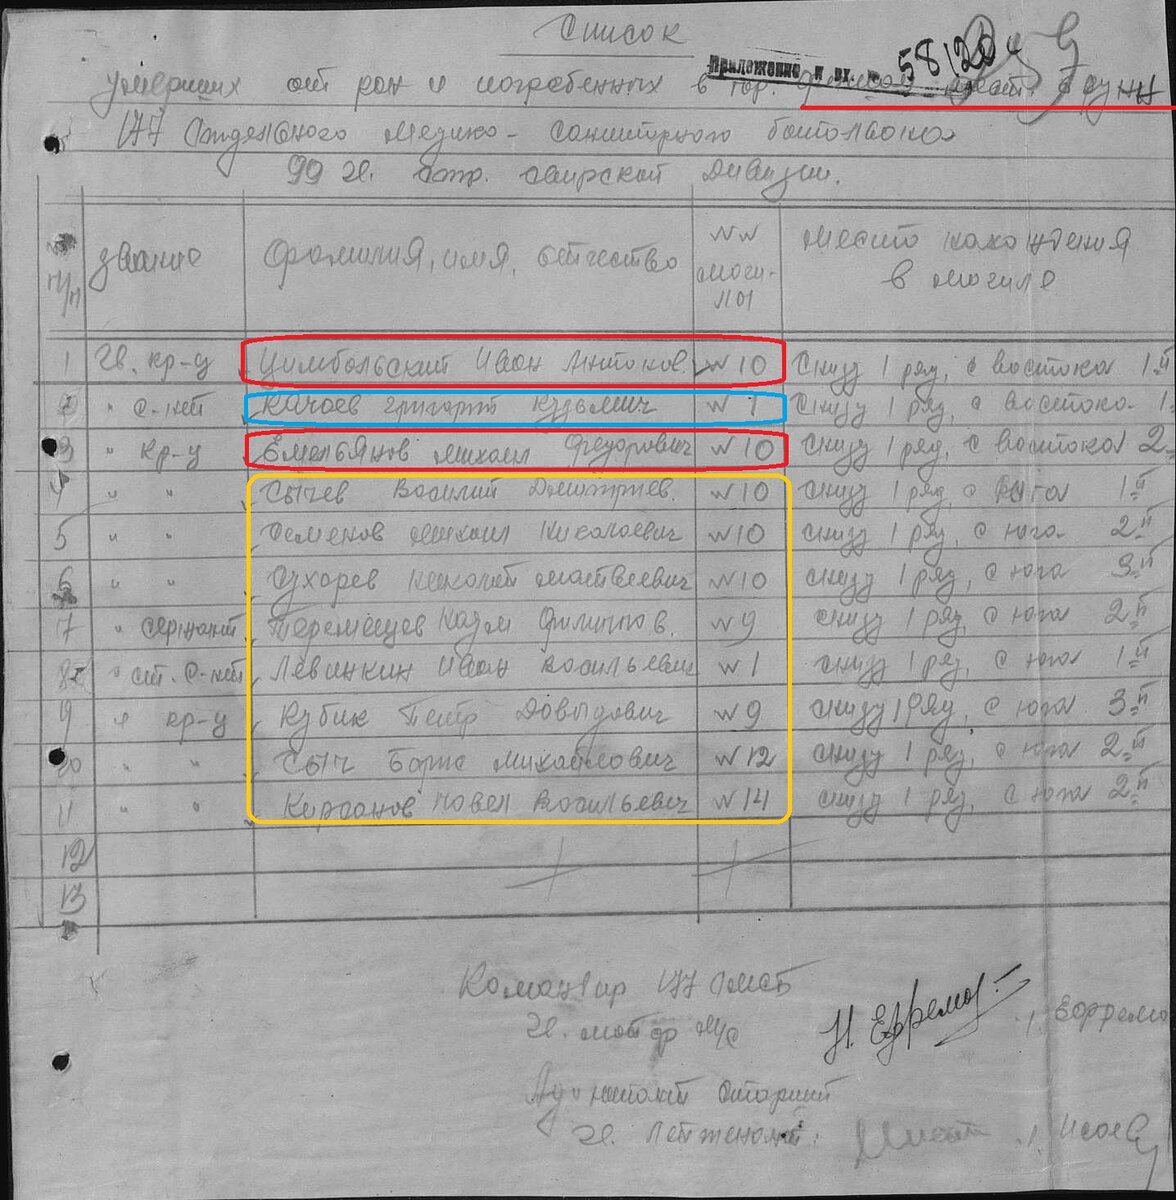 Список
Приложение к вх. 58126
умерших от ран и погребенных в гор.
177 Отдельного медико-санитарного батальона
99 гв. стр. свирской дивизии.
п/п звание Фамилия, имя, отчество №№ моги-лы место нахождения в могиле
1 Гв. кр-ц Цимбольский Иван Антонов. №10 Снизу 1 ряд, с востока 1-й
" с-нт Качаев Григорий Кузьмич № 1 Снизу 1 ряд, с востока 1
3 " кр-ц Емельянов Михаил Федорович №10 снизу 1 ряд, с востока 2-й
4 " " Сычев Василий Дмитриев. №10 снизу 1 ряд, с юга 1-й
5 " " Семенов Михаил Николаевич №10 снизу 1 ряд, с юга 2-й
6 " " Сухарев Николай Матвеевич №10 снизу 1 ряд, с юга 3-й
7 " сержант Перемещев Филиппов. №9 снизу 1 ряд, с юга 2-й
8 " ст. с-нт Левинкин Иван Васильевич №1 снизу 1 ряд, с юга 1-й
9 " кр-ц Кубик Петр Довыдович №9 снизу 1 ряд, с юга 3-й
10 " " Сыч Борис Михайлович №12 снизу 1 ряд, с юга 2-й
11 " " Кирсанов Павел Васильевич №14 снизу 1 ряд, с юга 2-й
12
13
Командир 177 ОМСБ
Гв. майор м/с Н. Ефремов /Ефремо
Адъютант старший
Гв. лейтенант: /Исаев/